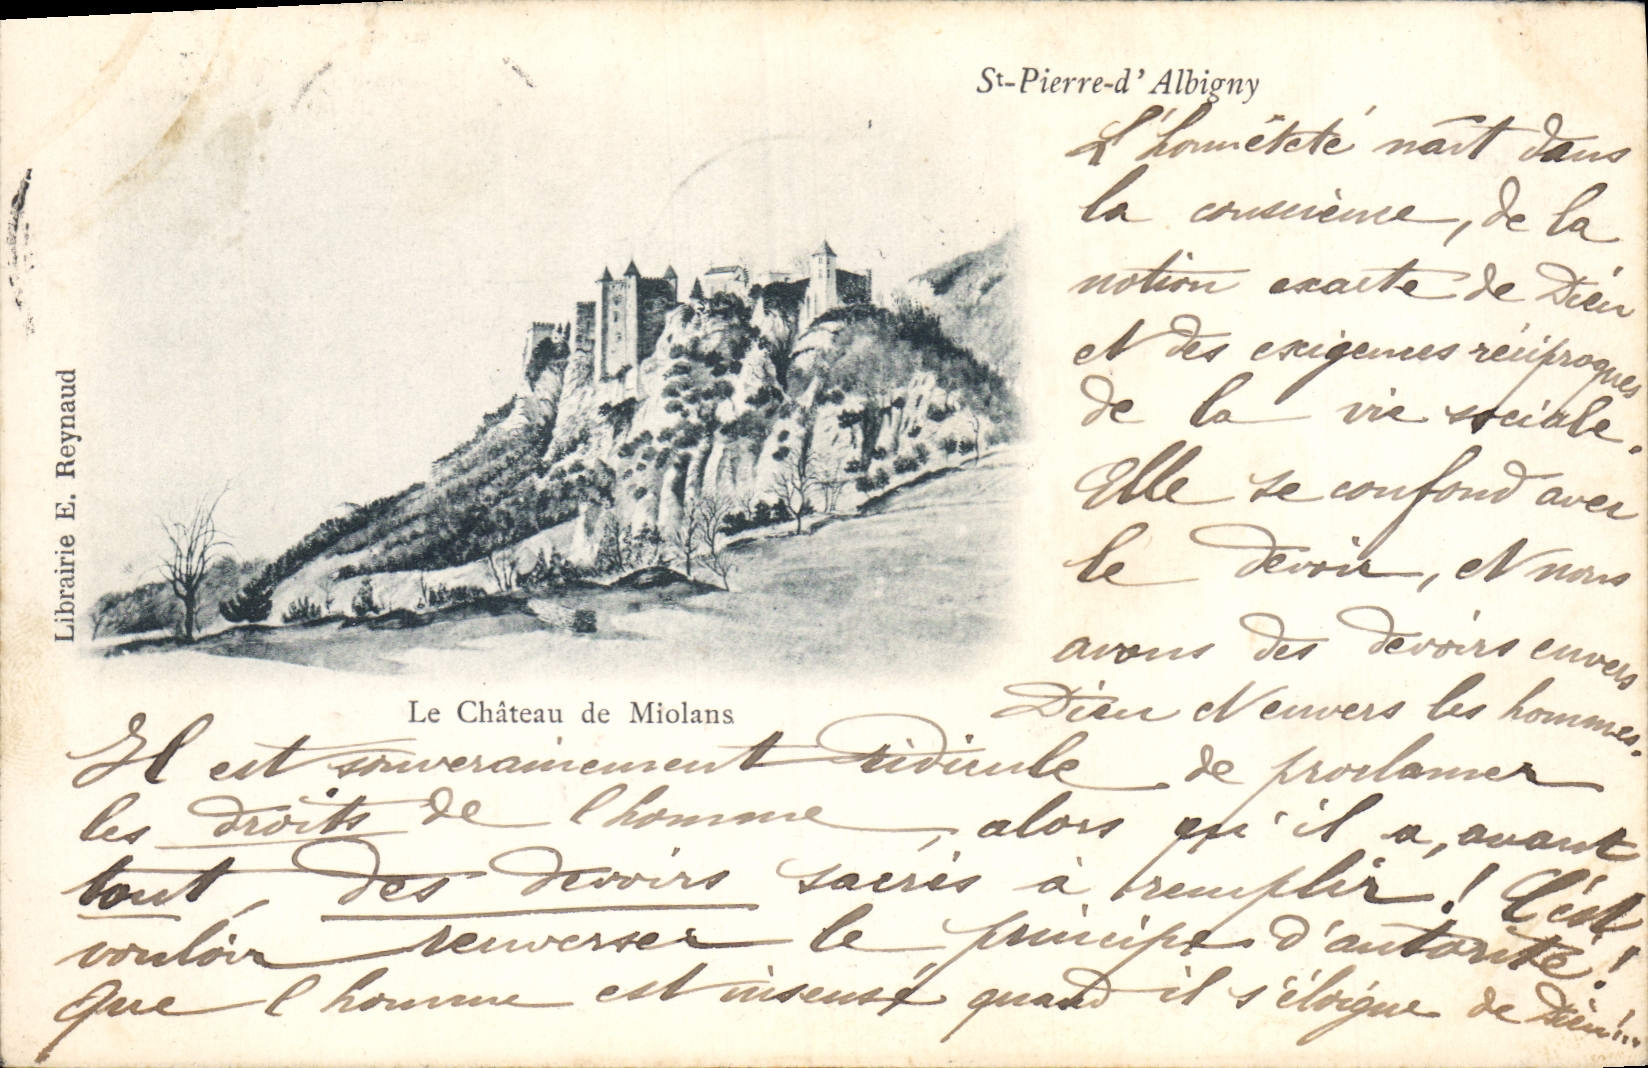 St-Pierre-d' Albigny
L'honnêteté naît dans
la conscience, de la
notion exacte de Dieu
et des exigences réciproques
de la vie sociale.
Elle se confond avec
le devoir, et nous
avons des devoirs envers
Dieu et envers les hommes.
Librairie E. Reynaud
Le Château de Miolans
Il est souverainement ridicule de proclamer
les droits de l'homme, alors qu'il a, avant
tout, des devoirs sacrés à remplir! C'est
vouloir renverser le principe d'autorité!
Que l'homme est insensé quand il s'éloigne de Dieu!..